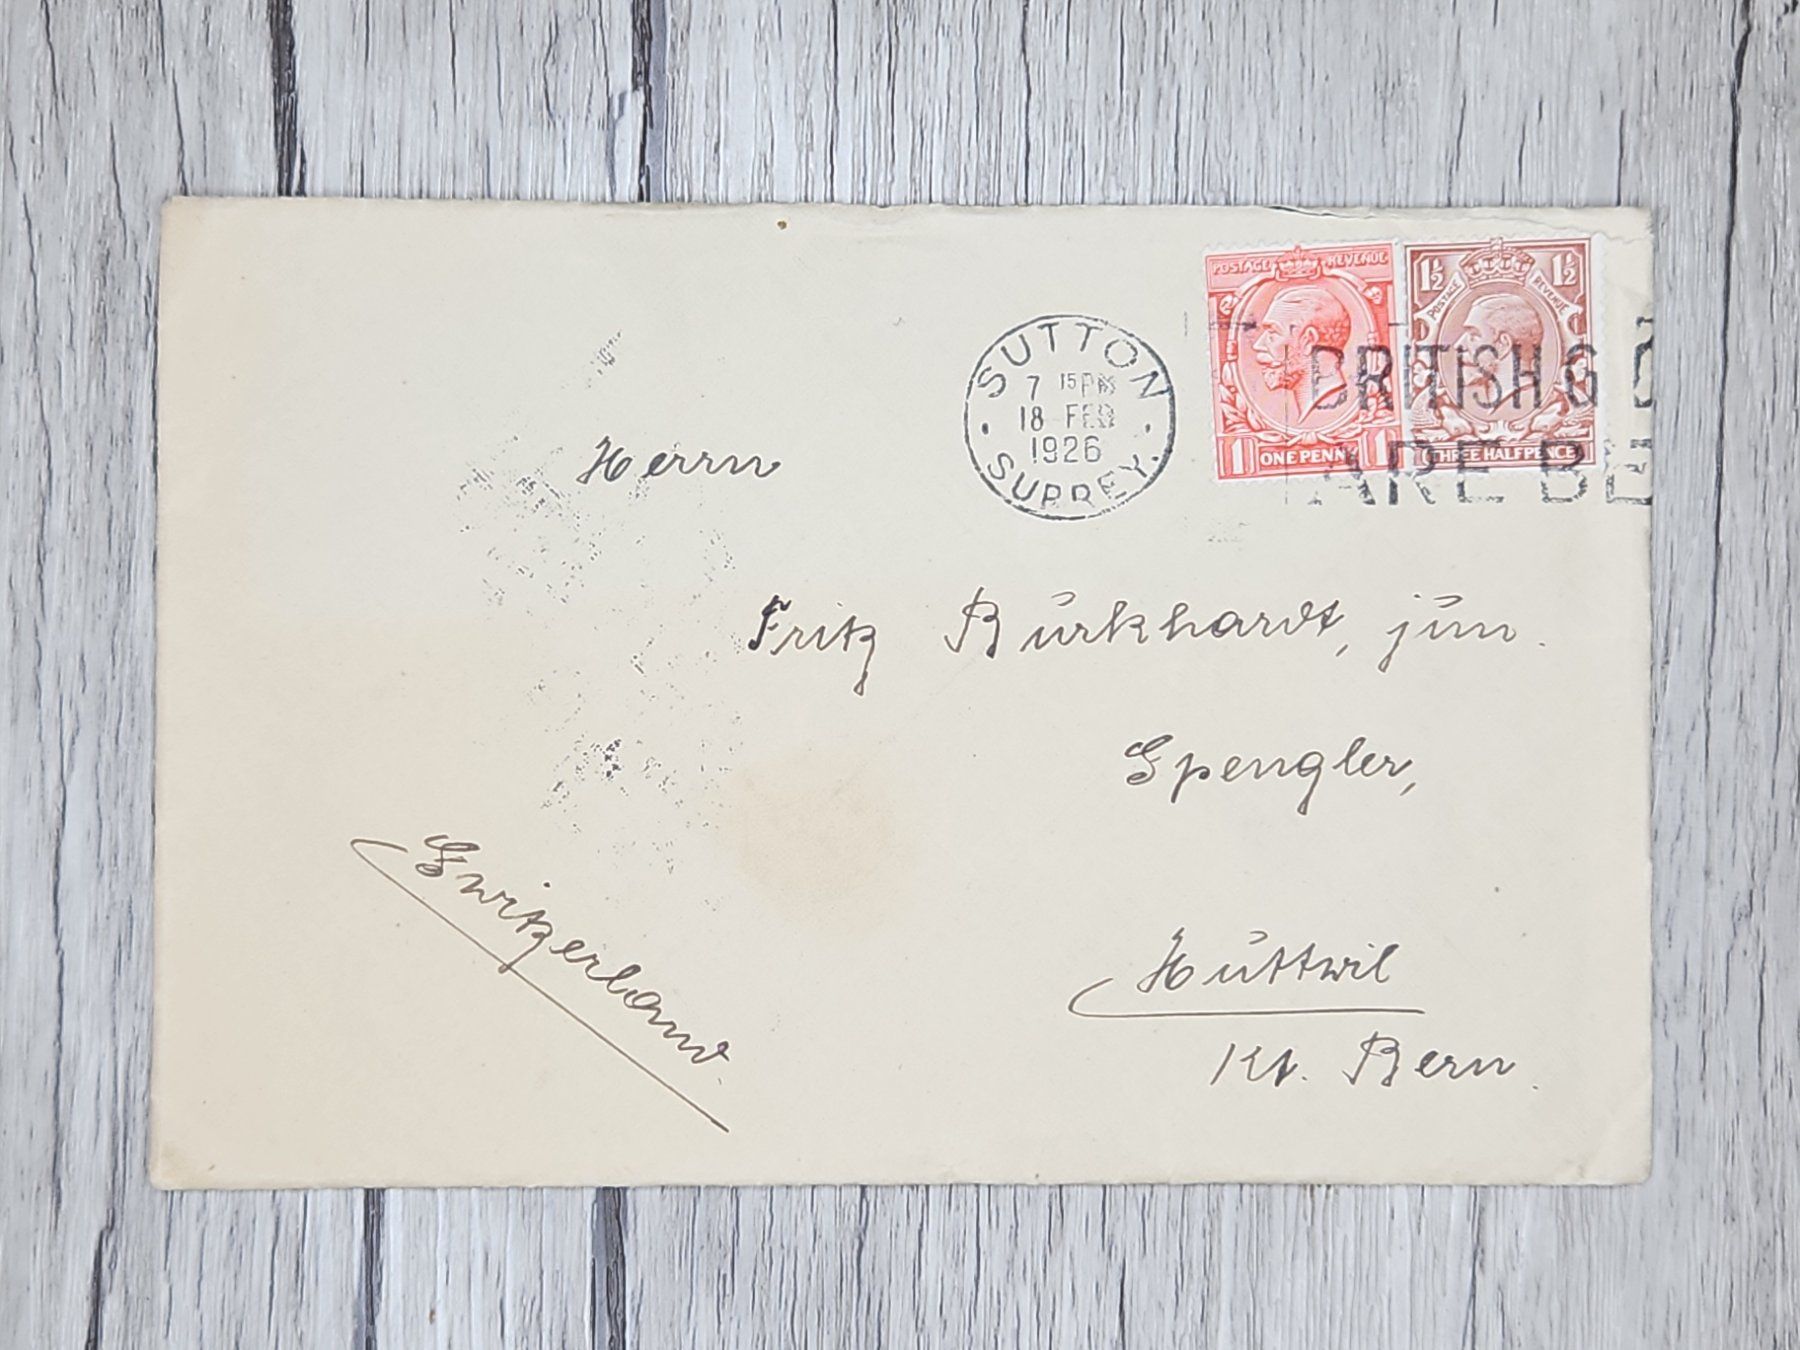 POSTAGE REVENUE
1 ONE PENNY 1
1½ 1½
POSTAGE REVENUE
THREE HALFPENCE
SUTTON
7 15 PM
18 FEB
1926
SURREY.
BRITISH GO
ARE BE
Herrn
Fritz Burkhardt, jun.
Spengler,
Switzerland.
Huttwil
Kt. Bern.